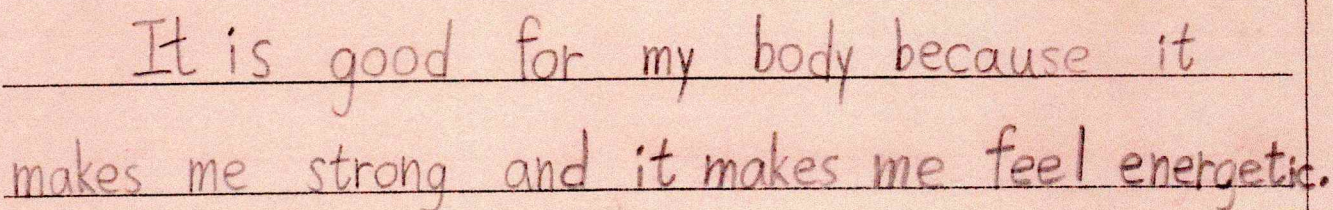 It is good for my body because it
makes me strong and it makes me feel energetic.